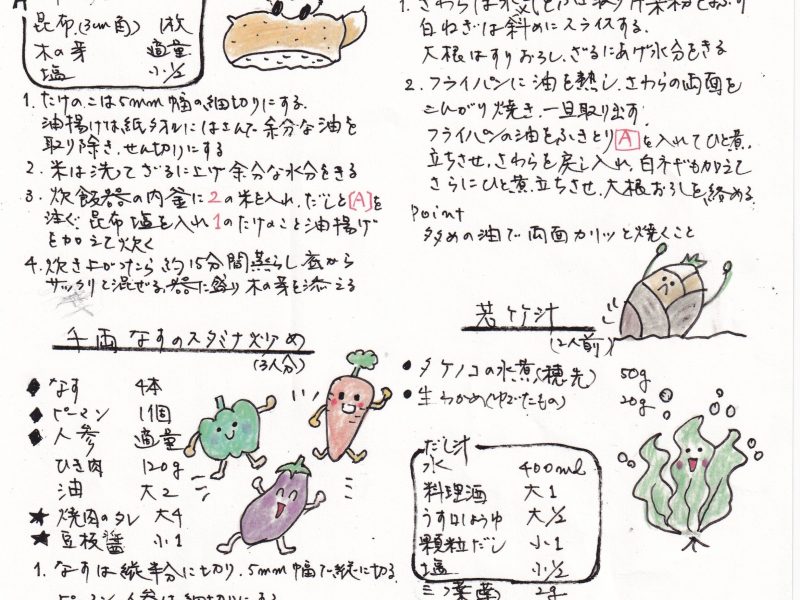 昆布(3cm角) 1枚
木の芽 適量
塩 小1/2
1. たけのこは5mm幅の細切りにする.
油揚げは紙タオルにはさんで余分な油を
取り除き、せん切りにする
2. 米は洗てざるに上げ余分な水分をきる
3. 炊飯器の内釜に2の米を入れ、だしと[A]を
注ぐ. 昆布塩を入れ1のたけのこと油揚げ
を加えて炊く
4. 炊き上がったら約15分間蒸らし底から
サックリと混ぜる、器に盛り木の芽を添える
千両なすのスタミナ炒め
(3人分)
◆ なす 4本
◆ ピーマン 1個
◆ 人参 適量
ひき肉 120g
油 大2
★ 焼肉のタレ 大4
★ 豆板醤 小1
1. なすは縦半分に切り、5mm幅で縦に切る.
ピーマン、人参は細切りにする
白ねぎは斜めにスライスする.
大根はすりおろし、ざるにあげ水分をきる
2. フライパンに油を熱し、さわらの両面を
こんがり焼き、一旦取り出す.
フライパンの油をふきとり[A]を入れてひと煮
立ちさせ、さわらを戻し入れ、白ネギも加えて
さらにひと煮立ちさせ、大根おろしを絡める.
Point
多めの油で両面カリッと焼くこと
若竹汁
(2人前)
• タケノコの水煮(穂先) 50g
• 生わかめ(ゆでたもの) 20g
だし汁
水 400ml
料理酒 大1
うす口しょうゆ 大1/2
顆粒だし 小1
塩 小1/2
三つ葉 2g